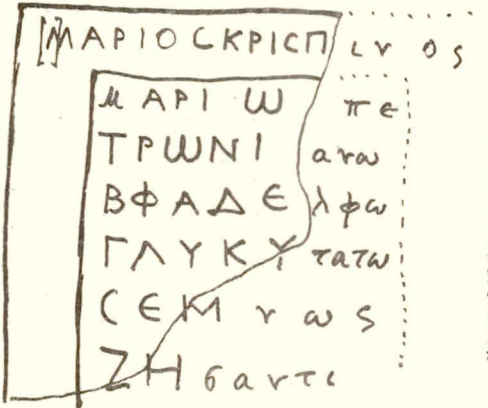 [Μ]ΑΡΙΟϹΚΡΙϹΠινος
μΑΡΙΩπε
ΤΡΩΝΙανω
ΒΦΑΔΕλφω
ΓΛΥΚΥτατω
ϹΕΜνως
ΖΗσαντι